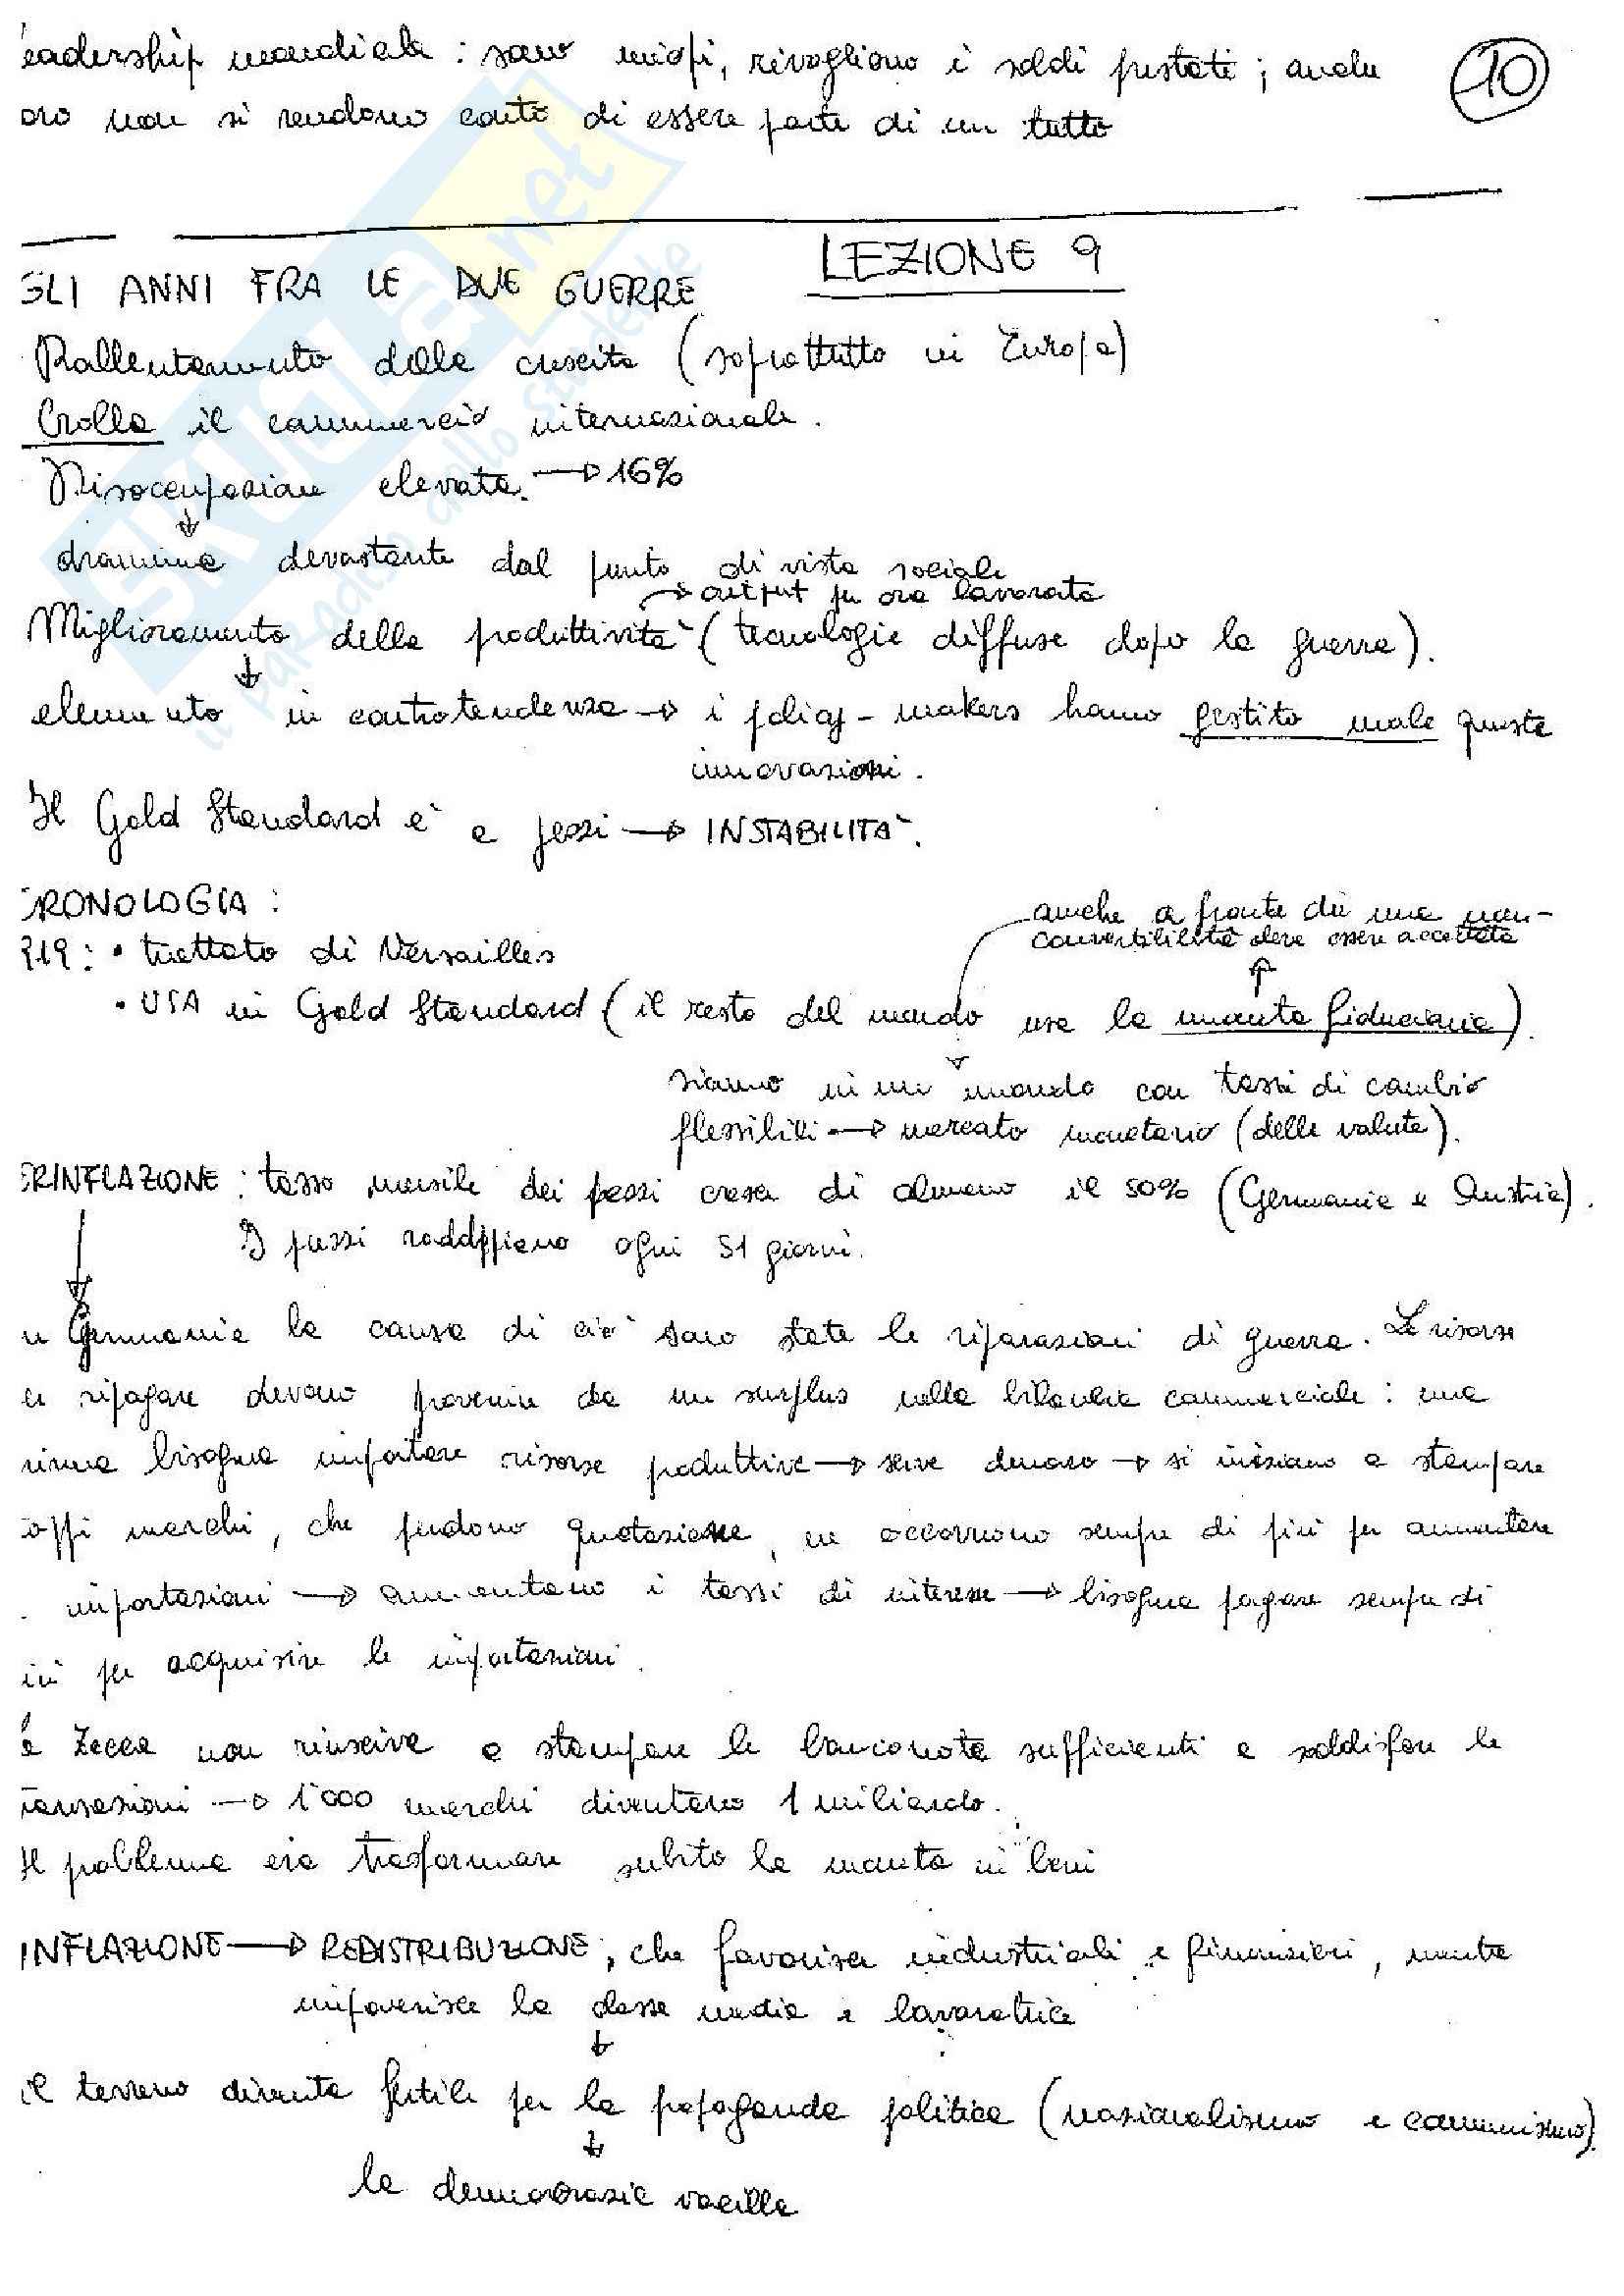 eadership mondiale : sono miopi, rivogliono i soldi prestati ; anche
oro non si rendono conto di essere parte di un tutto
10
LEZIONE 9
GLI ANNI FRA LE DUE GUERRE
Rallentamento della crescita (soprattutto in Europa)
Crolla il commercio internazionale.
Disoccupazione elevata. → 16%
↓
dramma devastante dal punto di vista sociale
→ output per ora lavorata
Miglioramento della produttività (tecnologie diffuse dopo la guerra).
↓
elemento in controtendenza → i policy-makers hanno gestito male queste
innovazioni.
Il Gold Standard è a pezzi → INSTABILITÀ.
CRONOLOGIA :
anche a fronte di una non-
convertibilità deve essere accettata
919 : • trattato di Versailles
• USA in Gold Standard (il resto del mondo usa la moneta fiduciaria).
siamo in un mondo con tassi di cambio
flessibili → mercato monetario (delle valute).
ERINFLAZIONE : tasso mensile dei prezzi cresce di almeno il 50% (Germania e Austria).
I prezzi raddoppiano ogni 51 giorni.
n Germania la causa di ciò sono state le riparazioni di guerra. Le risorse
er ripagare devono provenire da un surplus nella bilancia commerciale : ma
rima bisogna importare risorse produttive → serve denaro → si iniziano a stampare
oppi marchi, che perdono quotazione, ne occorrono sempre di più per aumentare
importazioni → aumentano i tassi di interesse → bisogna pagare sempre di
iù per acquisire le importazioni.
a Zecca non riusciva a stampare le banconote sufficienti a soddisfare le
ransazioni → 1'000 marchi diventano 1 miliardo.
Il problema era trasformare subito la moneta in beni
INFLAZIONE → REDISTRIBUZIONE, che favorisce industriali e finanzieri, mentre
impoverisce la classe media e lavoratrice
↓
il terreno diventa fertile per la propaganda politica (nazionalismo e comunismo).
↓
la democrazia vacilla
SKUOLA.net
il paradiso dello studente